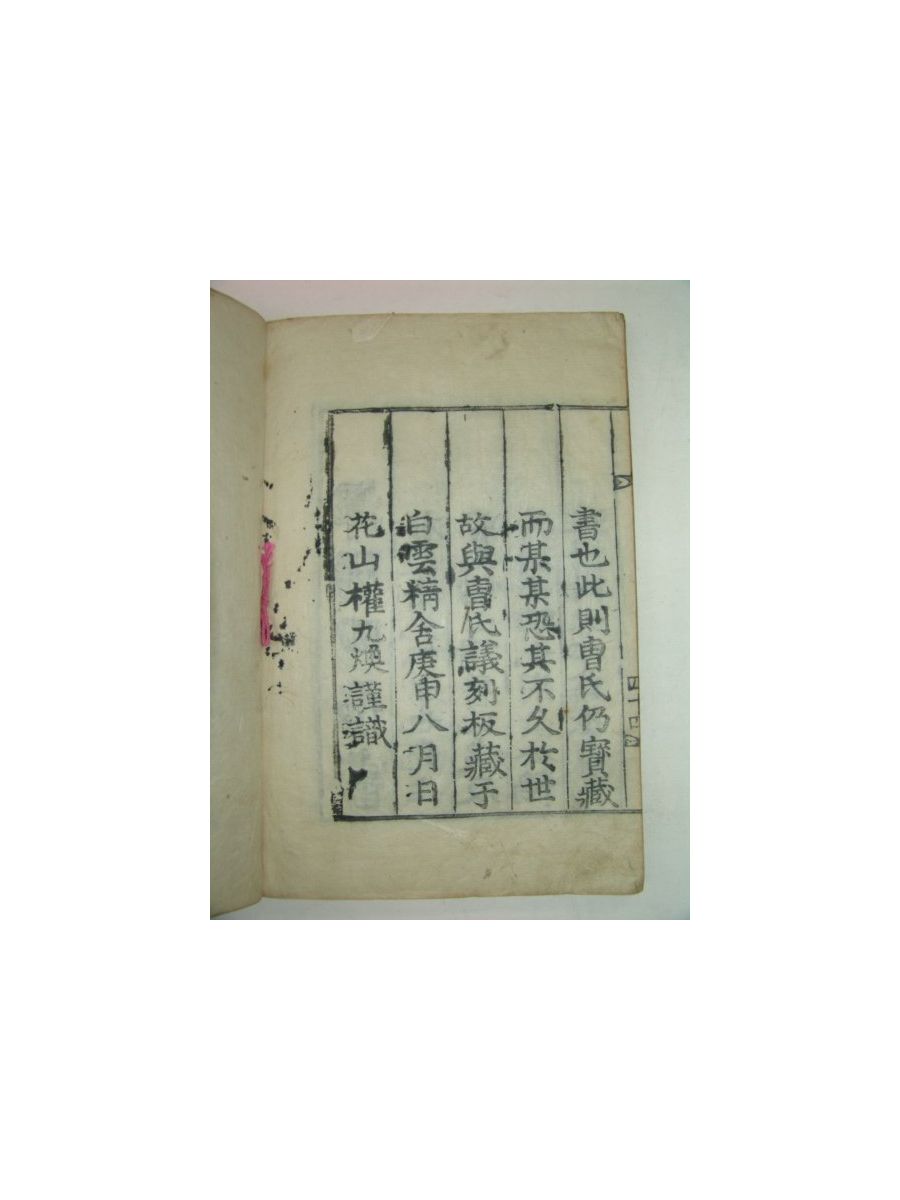 書也此則曺氏仍寶藏
而某某恐其不久於世
故與曺氏議刻板藏于
白雲精舍庚申八月日
花山權九煥謹識
四十四